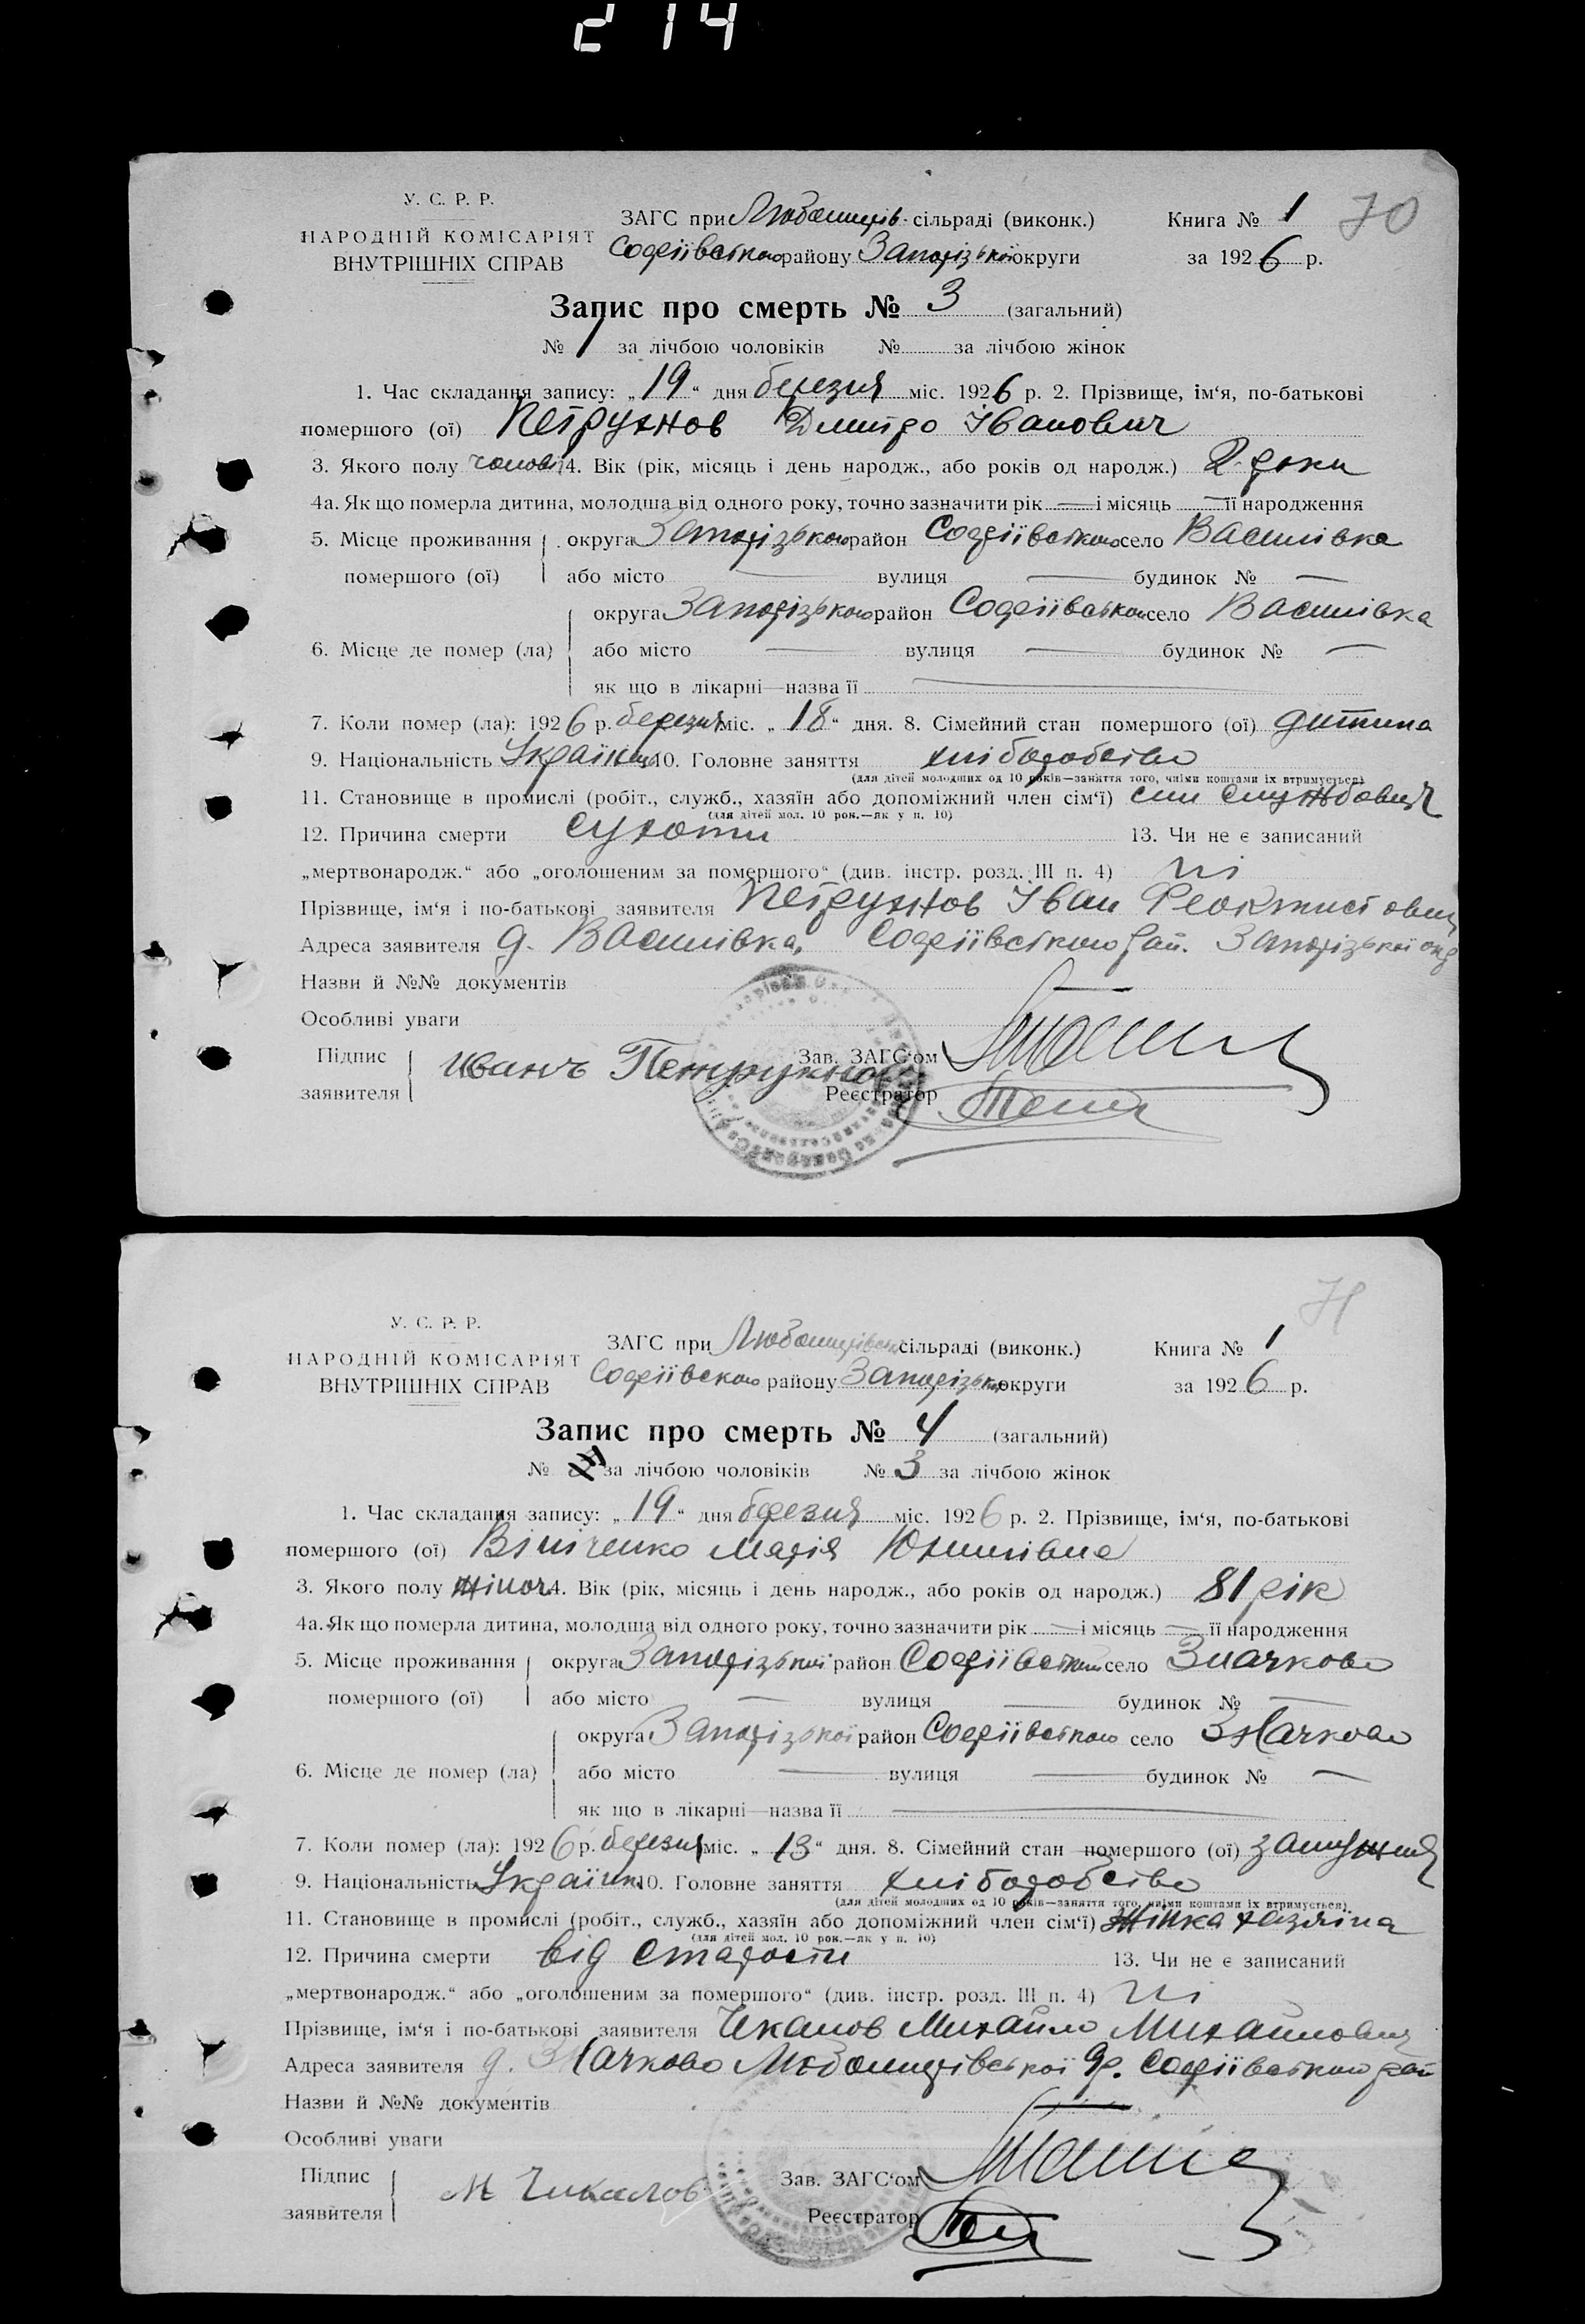 214
70
У. С. Р. Р.
НАРОДНІЙ КОМІСАРІЯТ
ВНУТРІШНІХ СПРАВ
ЗАГС при Любомирів. сільраді (виконк.)
Софіївського району Запорізької округи
Книга № 1
за 1926 р.
Запис про смерть № 3 (загальний)
№ 1 за лічбою чоловіків № за лічбою жінок
1. Час складання запису: „19“ дня березня міс. 1926 р. 2. Прізвище, ім‘я, по-батькові
помершого (ої) Петрухнов Дмитро Іванович
3. Якого полу чолов. 4. Вік (рік, місяць і день народж., або років од народж.) 2 роки
4а. Як що померла дитина, молодша від одного року, точно зазначити рік — і місяць — її народження
5. Місце проживання округа Запорізького район Софіївського село Василівка
помершого (ої) або місто — вулиця — будинок № —
округа Запорізького район Софіївського село Василівка
6. Місце де помер (ла) або місто — вулиця — будинок № —
як що в лікарні—назва її —
7. Коли помер (ла): 1926 р. березня міс. „18“ дня. 8. Сімейний стан помершого (ої) дитина
9. Національність Українець 10. Головне заняття хліборобство
(для дітей молодших од 10 років—заняття того, чиїми коштами їх втримується)
11. Становище в промислі (робіт., служб., хазяїн або допоміжний член сім‘ї) син службовця
(для дітей мол. 10 рок.—як у п. 10)
12. Причина смерти сухоти 13. Чи не є записаний
„мертвонародж.“ або „оголошеним за помершого“ (див. інстр. розд. III п. 4) ні
Прізвище, ім‘я і по-батькові заявителя Петрухнов Іван Феоктистович
Адреса заявителя д. Василівка, Софіївського рай. Запорізької окр
Назви й №№ документів
Особливі уваги
Підпис заявителя Иванъ Петрухнов
Зав. ЗАГС‘ом
Реєстратор
71
У. С. Р. Р.
НАРОДНІЙ КОМІСАРІЯТ
ВНУТРІШНІХ СПРАВ
ЗАГС при Любомирівськ сільраді (виконк.)
Софіївского району Запорізької округи
Книга № 1
за 1926 р.
Запис про смерть № 4 (загальний)
№ за лічбою чоловіків № 3 за лічбою жінок
1. Час складання запису: „19“ дня березня міс. 1926 р. 2. Прізвище, ім‘я, по-батькові
помершого (ої) Марія Юхимівна
3. Якого полу жіноч. 4. Вік (рік, місяць і день народж., або років од народж.) 81 рік
4а. Як що померла дитина, молодша від одного року, точно зазначити рік — і місяць — її народження
5. Місце проживання округа Запорізької район Софіївський село Значково
помершого (ої) або місто — вулиця — будинок № —
округа Запорізької район Софіївського село Значково
6. Місце де помер (ла) або місто — вулиця — будинок № —
як що в лікарні—назва її —
7. Коли помер (ла): 1926 р. березня міс. „13“ дня. 8. Сімейний стан помершого (ої) замужня
9. Національність Українк. 10. Головне заняття хліборобство
(для дітей молодших од 10 років—заняття того, чиїми коштами їх втримується)
11. Становище в промислі (робіт., служб., хазяїн або допоміжний член сім‘ї) жінка хазяїна
(для дітей мол. 10 рок.—як у п. 10)
12. Причина смерти від старости 13. Чи не є записаний
„мертвонародж.“ або „оголошеним за помершого“ (див. інстр. розд. III п. 4) ні
Прізвище, ім‘я і по-батькові заявителя Чкалов Михайло Михайлович
Адреса заявителя д. Значково Любомирівської Ср. Софіївського рай
Назви й №№ документів
Особливі уваги
Підпис заявителя М Чикалов
Зав. ЗАГС‘ом
Реєстратор